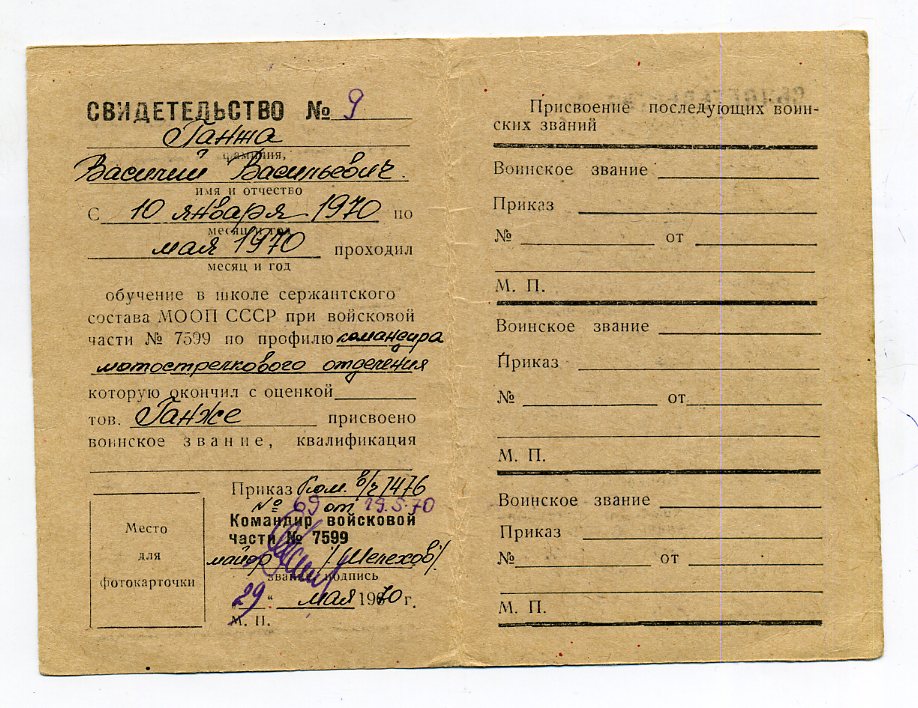 СВИДЕТЕЛЬСТВО № 9
Ганжа
фамилия,
Василий Васильевич
имя и отчество
С 10 января 1970 по
месяц и год
мая 1970 проходил
месяц и год
обучение в школе сержантского
состава МООП СССР при войсковой
части № 7599 по профилю командира
мотострелкового отделения
которую окончил с оценкой
тов. Ганже присвоено
воинское звание, квалификация
Приказ Ком. в/ч 7476
№ 69 от 29.5.70
Командир войсковой
части № 7599
майор /Шелехов/
звание, подпись
29 " мая 1970 г.
М. П.
Место
для
фотокарточки
Присвоение последующих воин-
ских званий
Воинское звание
Приказ
№ от
М. П.
Воинское звание
Приказ
№ от
М. П.
Воинское звание
Приказ
№ от
М. П.